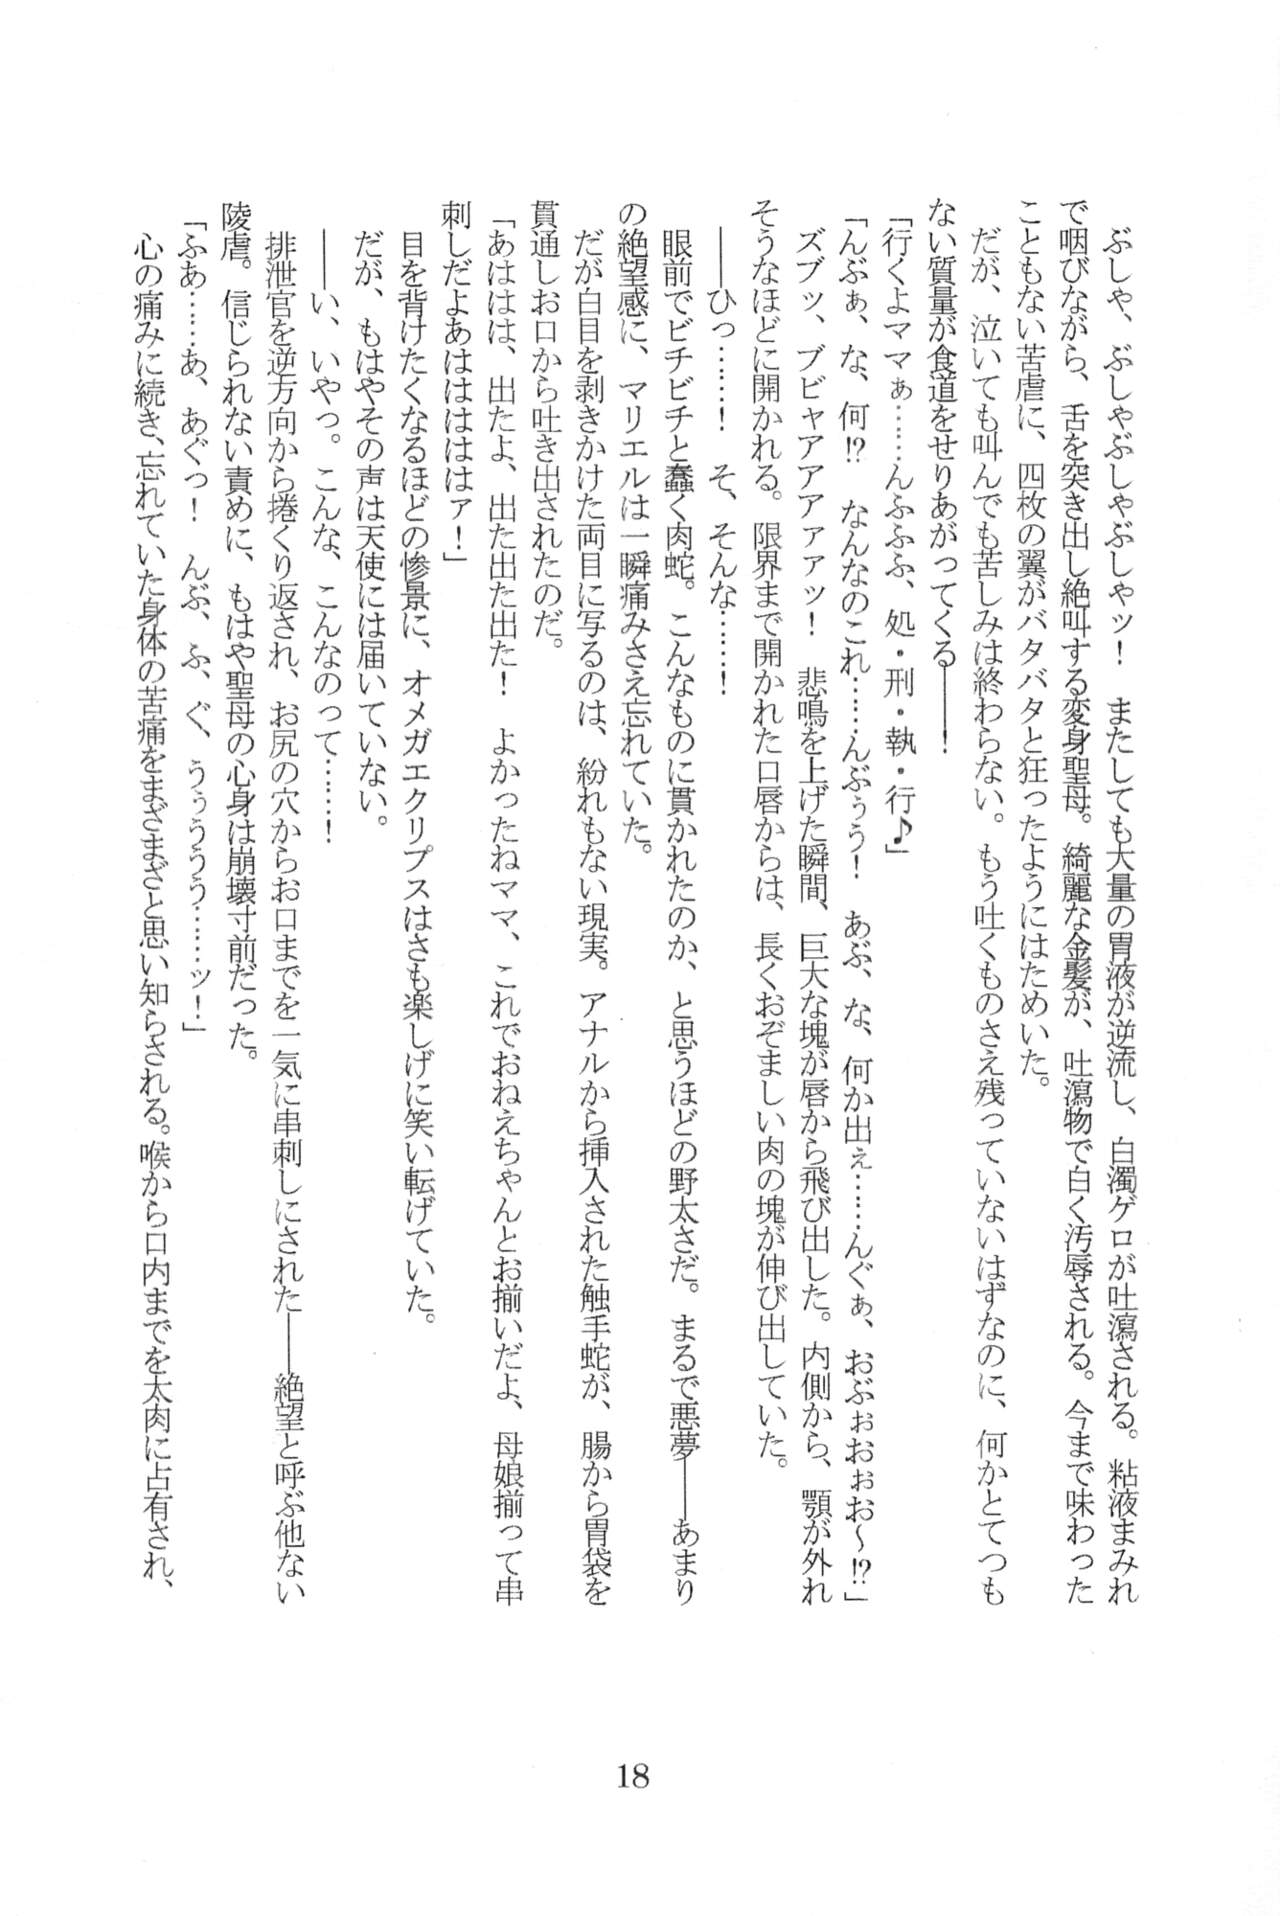 ぶしゃ、ぶしゃぶしゃぶしゃッ！　またしても大量の胃液が逆流し、白濁ゲロが吐瀉される。粘液まみれ
で咽びながら、舌を突き出し絶叫する変身聖母。綺麗な金髪が、吐瀉物で白く汚辱される。今まで味わった
こともない苦虐に、四枚の翼がバタバタと狂ったようにはためいた。
だが、泣いても叫んでも苦しみは終わらない。もう吐くものさえ残っていないはずなのに、何かとてつも
ない質量が食道をせりあがってくる――！
「行くよママぁ……んふふふ、処・刑・執・行♪」
「んぶぁ、な、何!?　なんなのこれ……んぶぅぅ！　あぶ、な、何か出ぇ……んぐぁ、おぶぉぉおぉぉお～!?」
ズブッ、ブビャアアアァァッ！　悲鳴を上げた瞬間、巨大な塊が唇から飛び出した。内側から、顎が外れ
そうなほどに開かれる。限界まで開かれた口唇からは、長くおぞましい肉の塊が伸び出していた。
――ひっ……！　そ、そんな……！
眼前でビチビチと蠢く肉蛇。こんなものに貫かれたのか、と思うほどの野太さだ。まるで悪夢――あまり
の絶望感に、マリエルは一瞬痛みさえ忘れていた。
だが白目を剥きかけた両目に写るのは、紛れもない現実。アナルから挿入された触手蛇が、腸から胃袋を
貫通しお口から吐き出されたのだ。
「あははは、出たよ、出た出た出た！　よかったねママ、これでおねえちゃんとお揃いだよ、母娘揃って串
刺しだよあはははははァ！」
目を背けたくなるほどの惨景に、オメガエクリプスはさも楽しげに笑い転げていた。
だが、もはやその声は天使には届いていない。
――い、いやっ。こんな、こんなのって……！
排泄官を逆方向から捲くり返され、お尻の穴からお口までを一気に串刺しにされた――絶望と呼ぶ他ない
陵虐。信じられない責めに、もはや聖母の心身は崩壊寸前だった。
「ふあ……あ、あぐっ！　んぶ、ふ、ぐ、うぅううう……ッ！」
心の痛みに続き、忘れていた身体の苦痛をまざまざと思い知らされる。喉から口内までを太肉に占有され、
18